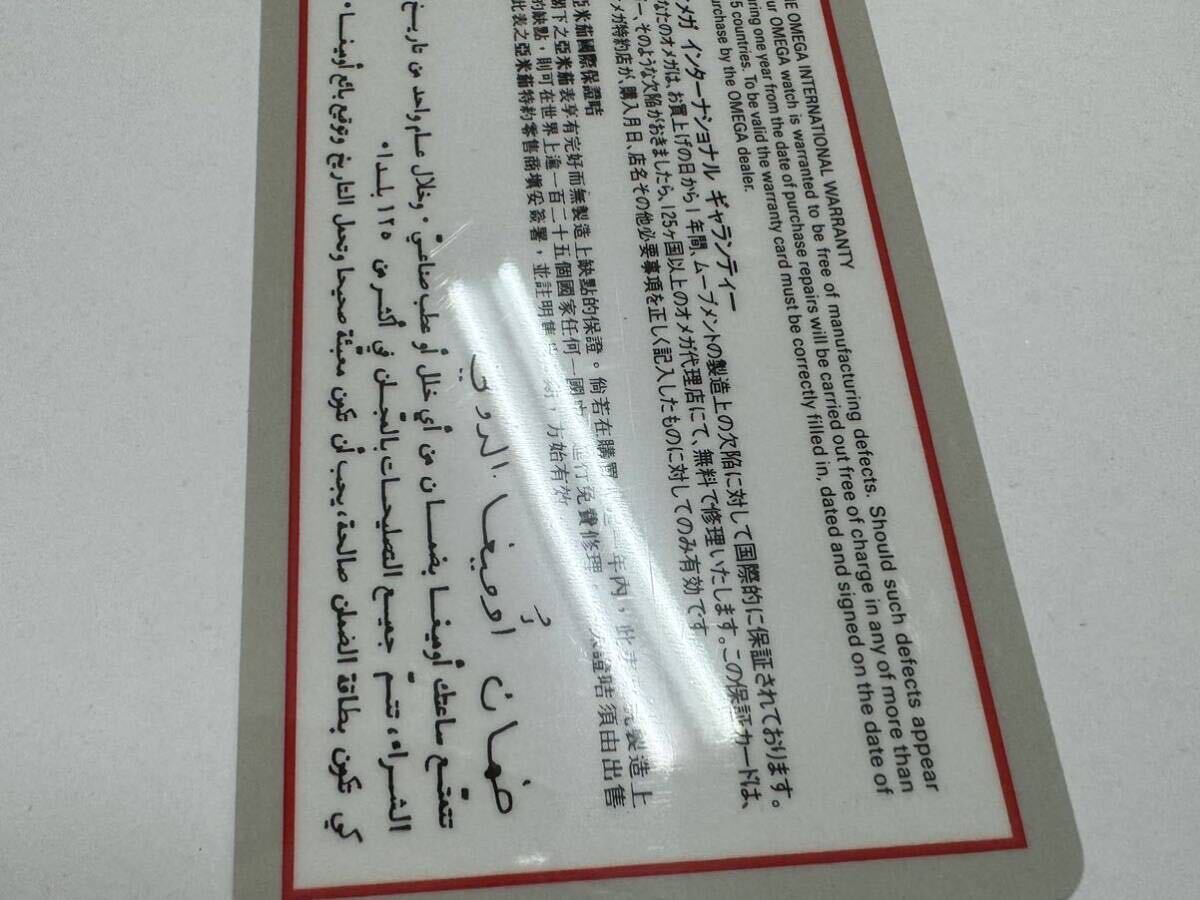 THE OMEGA INTERNATIONAL WARRANTY
OMEGA watch is warranted to be free of manufacturing defects. Should such defects appear
one year from the date of purchase repairs will be carried out free of charge in any of more than
countries. To be valid the warranty card must be correctly filled in, dated and signed on the date of
purchase by the OMEGA dealer.
メガ インターナショナル ギャランティー
なたのオメガは、お買上げの日から1年間、ムーブメントの製造上の欠陥に対して国際的に保証されております。
そのような欠陥がおきましたら、125ヶ国以上のオメガ代理店にて、無料で修理いたします。この保証カードは、
メガ特約店が、購入月日、店名その他必要事項を正しく記入したものに対してのみ有効です。
亞米茄國際保證咭
閣下之亞米茄表享有完好而無製造上缺點的保證。倘若在購買 年內，此 製造上
的缺點，則可在世界上逾一百二十五個國家任何一國 行免費修理。 證咭須由出售
此表之亞米茄特約零售商填妥簽署，並註明售出 方始有效
ضمان أوميغا الدولي
تتمتع ساعتك أوميغا بضمان من أي خلل أو عطب صناعي. وخلال عام واحد من تاريخ
الشراء، تتم جميع التصليحات بالمجان في أكثر من ١٢٥ بلدا.
كي تكون بطاقة الضمان صالحة، يجب أن تكون معبئة صحيحا وتحمل التاريخ وتوقيع بائع أوميغا.